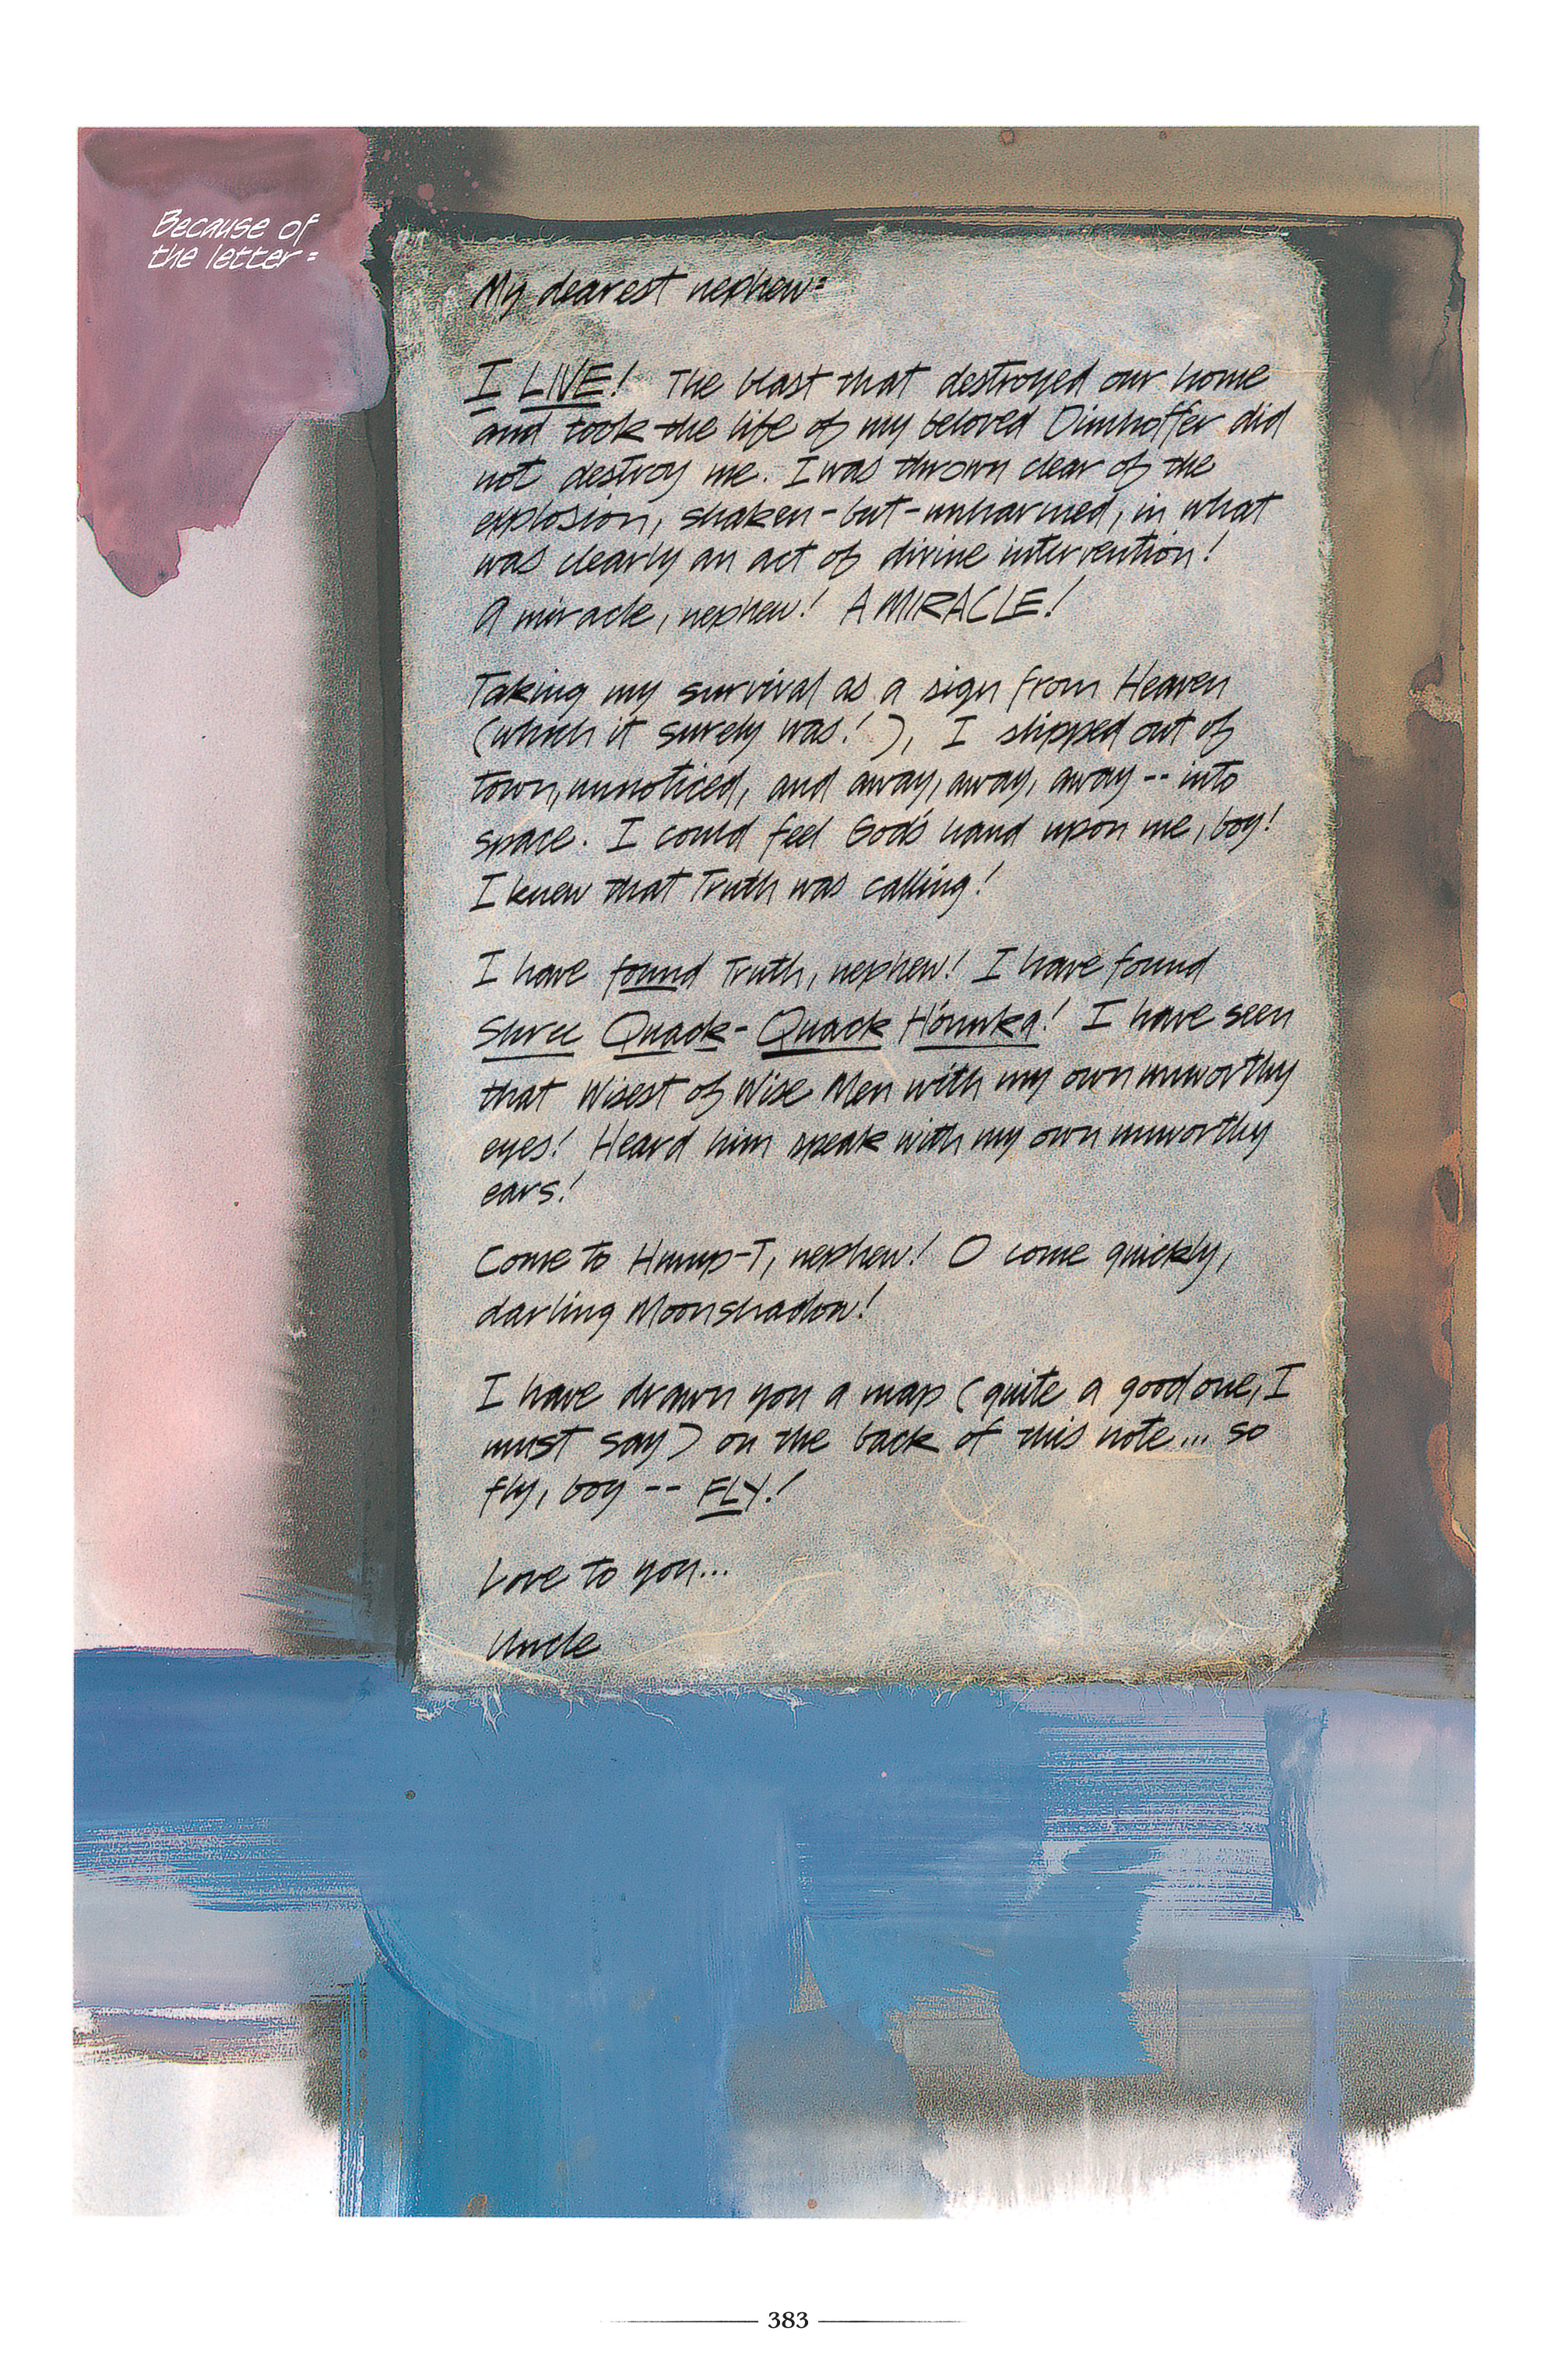 Because of
the letter:
My dearest nephew:
I LIVE! The blast that destroyed our home
and took the life of my beloved Dimhoffer did
not destroy me. I was thrown clear of the
explosion, shaken-but-unharmed, in what
was clearly an act of divine intervention!
A miracle, nephew! A MIRACLE!
Taking my survival as a sign from Heaven
(which it surely was!), I slipped out of
town, unnoticed, and away, away, away -- into
space. I could feel God's hand upon me, boy!
I knew that Truth was calling!
I have found Truth, nephew! I have found
Shree Quack-Quack Hónnka! I have seen
that Wisest of Wise Men with my own unworthy
eyes! Heard him speak with my own unworthy
ears!
Come to Hump-T, nephew! O come quickly,
darling Moonshadow!
I have drawn you a map (quite a good one, I
must say) on the back of this note... so
fly, boy -- FLY!
Love to you...
Uncle
383